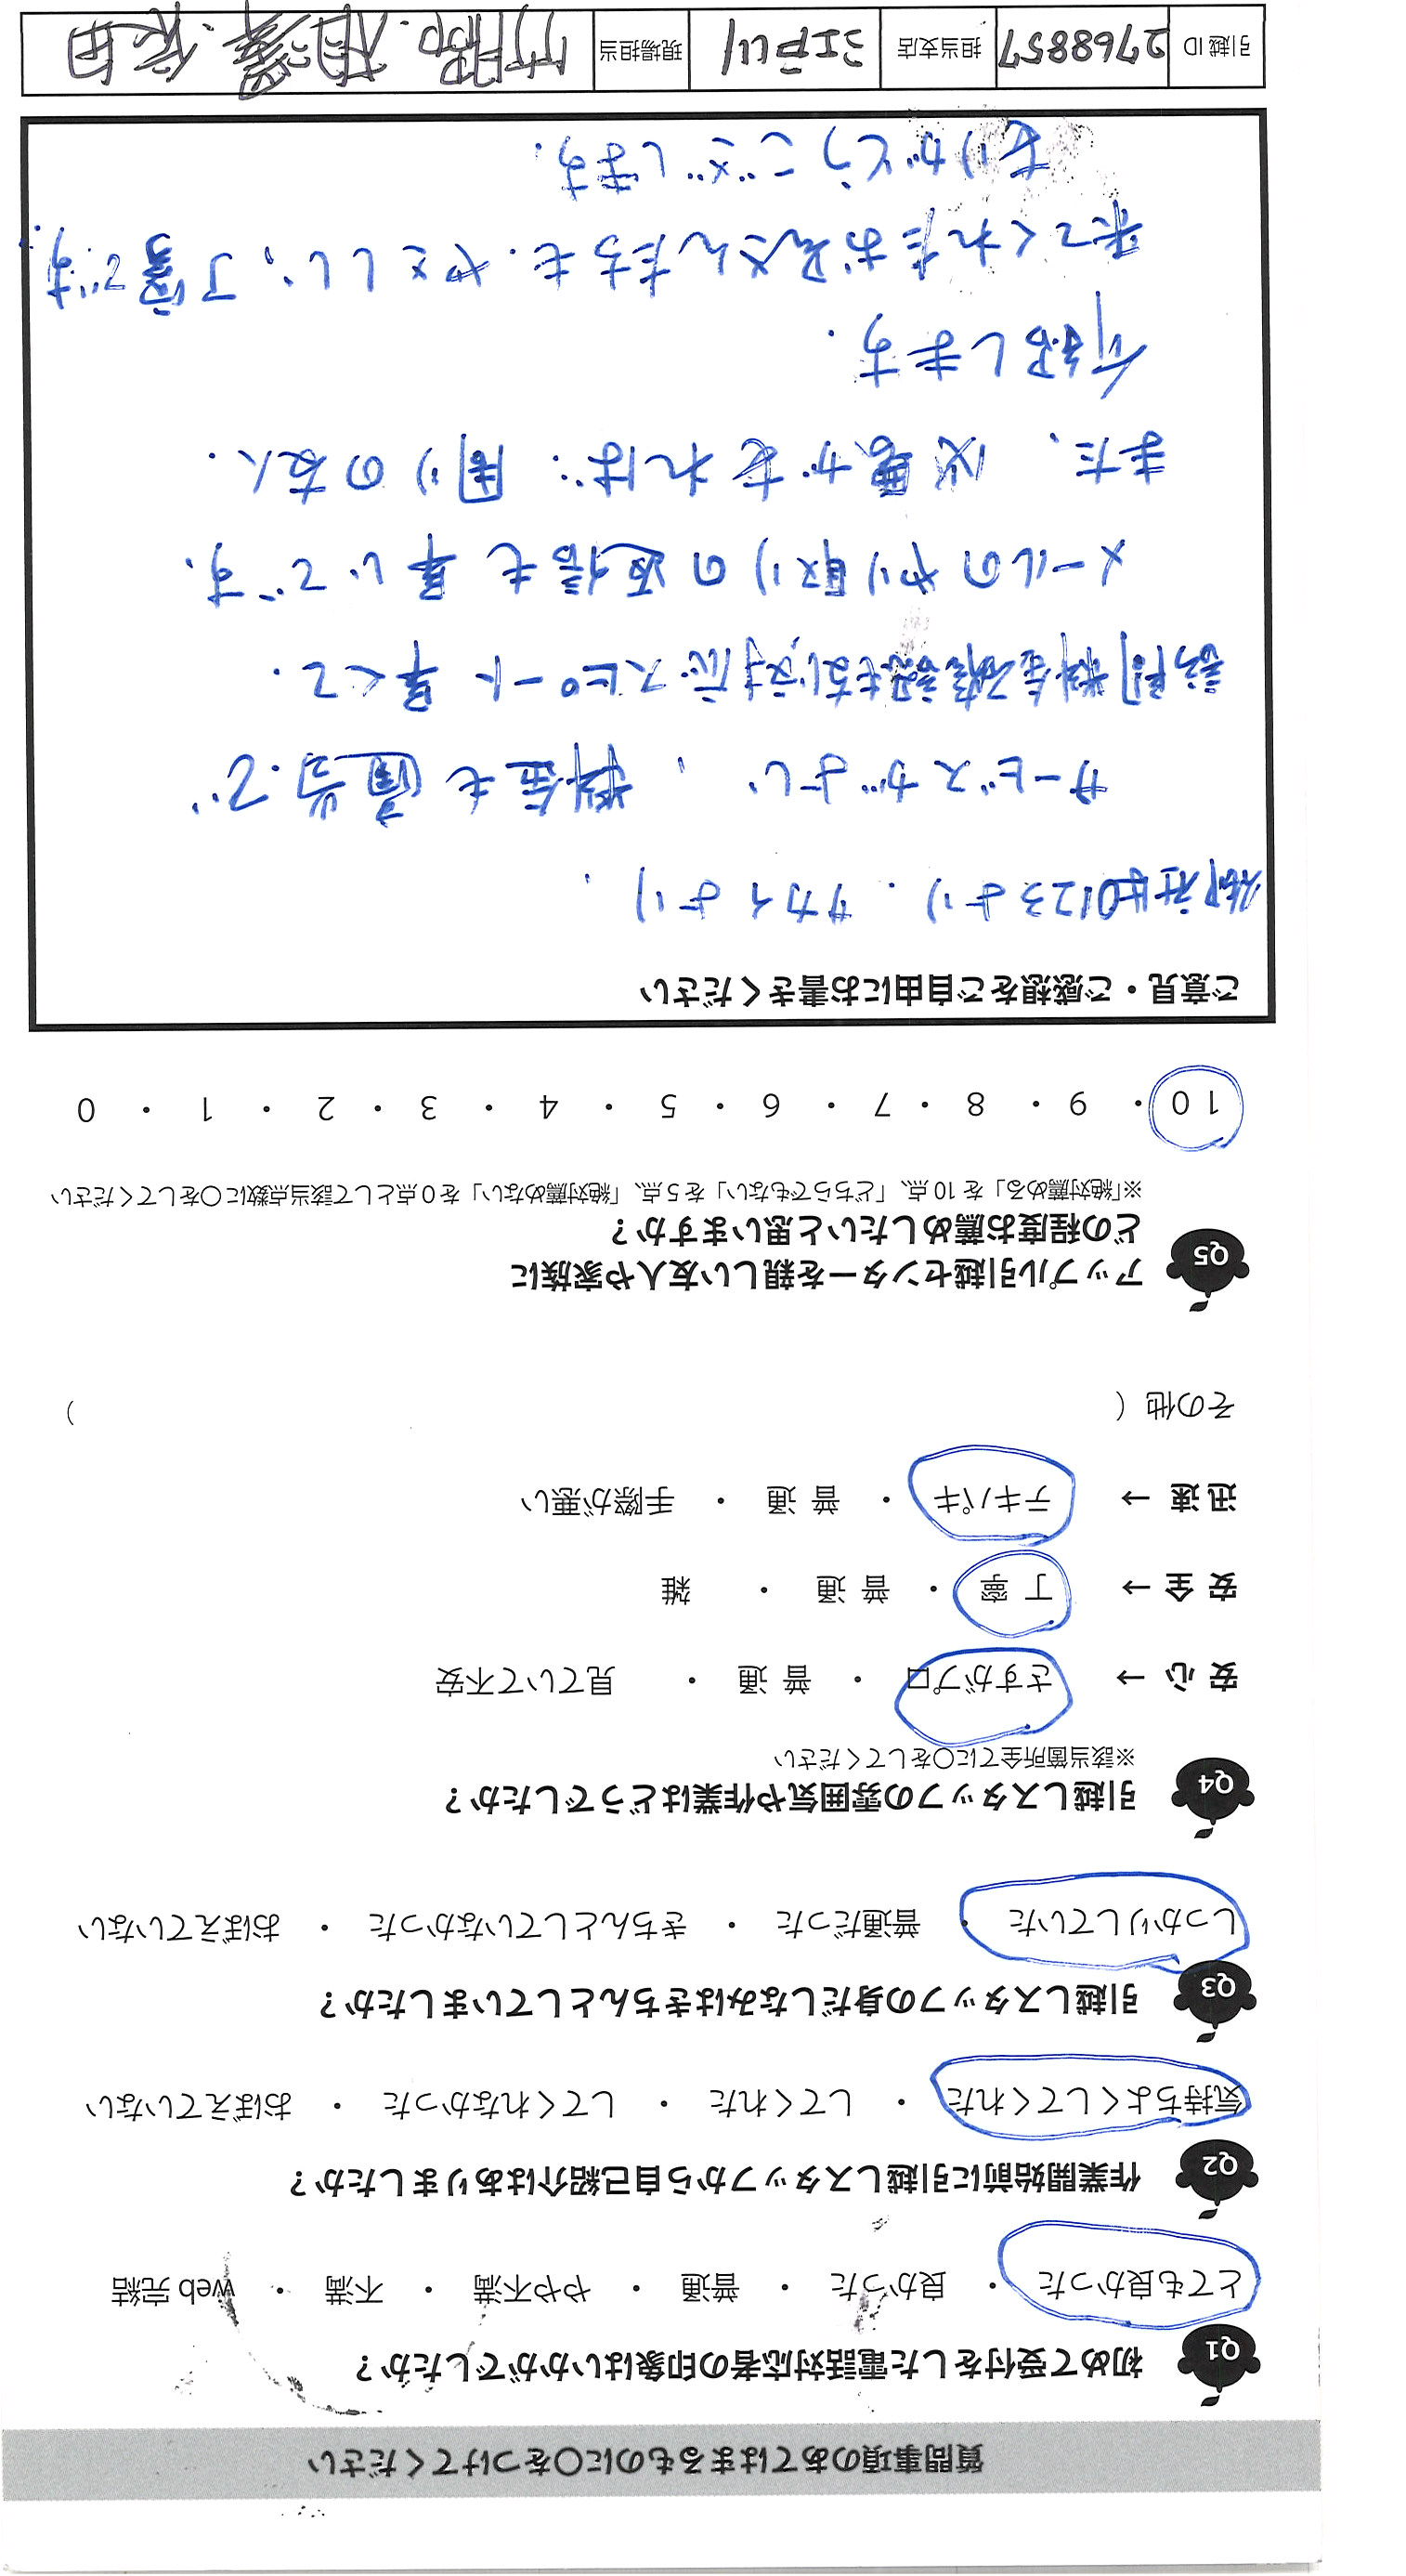 質問事項のあてはまるものに○をつけてください
Q1 初めて受付をした電話対応者の印象はいかがでしたか？
とても良かった ・ 良かった ・ 普通 ・ やや不満 ・ 不満 ・ web 完結
Q2 作業開始前に引越しスタッフから自己紹介はありましたか？
気持ちよくしてくれた ・ してくれた ・ してくれなかった ・ おぼえていない
Q3 引越しスタッフの身だしなみはきちんとしていましたか？
しっかりしていた ・ 普通だった ・ きちんとしていなかった ・ おぼえていない
Q4 引越しスタッフの雰囲気や作業はどうでしたか？
※該当箇所全てに○をしてください
安心 → さすがプロ ・ 普通 ・ 見ていて不安
安全 → 丁寧 ・ 普通 ・ 雑
迅速 → テキパキ ・ 普通 ・ 手際が悪い
その他（ ）
Q5 アップル引越センターを親しい友人や家族に
どの程度お薦めしたいと思いますか？
※「絶対薦める」を 10 点、「どちらでもない」を 5 点、「絶対薦めない」を 0 点として該当点数に○をしてください
10 ・ 9 ・ 8 ・ 7 ・ 6 ・ 5 ・ 4 ・ 3 ・ 2 ・ 1 ・ 0
ご意見・ご感想をご自由にお書きください
御社は0123より、サカイより、
サービスがよい、料金も適当で、
訪問料金確認もなし対応スピート早くて、
メールのやり取りの返信も早いです、
また、必要があれば、周りの友人
紹します。
来てくれたお兄さんたちも、やさしい、丁寧です。
ありがどうございます。
引越 ID 2768857 担当支店 江戸川 現場担当 竹部.相澤.依田